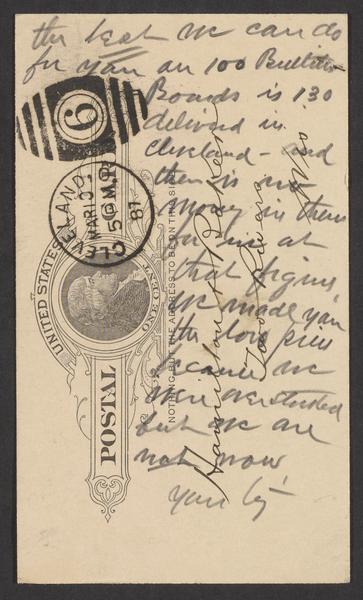 the best we can do
for you on 100 Bulletin
Boards is 130
delivered in
Cleveland - and
there is no
money in them
for us at
that figure
We made you
the low price
because we
were overstocked
but we are
not now
Yours ty
UNITED STATES
POSTAL
ONE CENT
NOTHING BUT THE ADDRESS TO BE ON THIS SIDE
CLEVELAND, O.
MAR 10
5 PM
87
6
Hamilton & Baker
Ohio